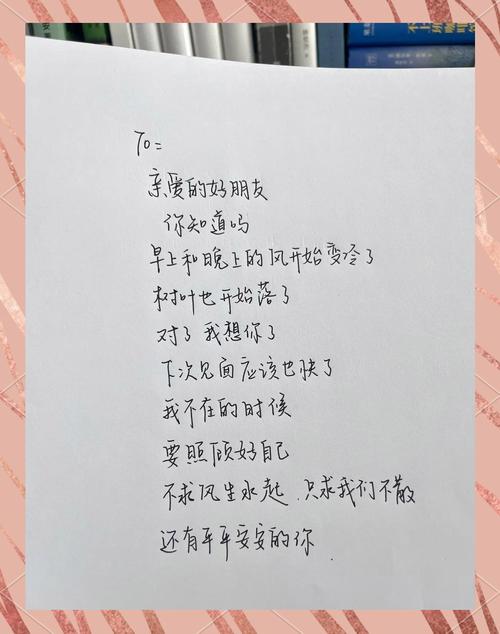 To:
亲爱的好朋友
你知道吗
早上和晚上的风开始变冷了
树叶也开始落了
对了 我想你了
下次见面应该也快了
我不在的时候
要照顾好自己
不求风生水起、只求我们不散
还有平平安安的你.